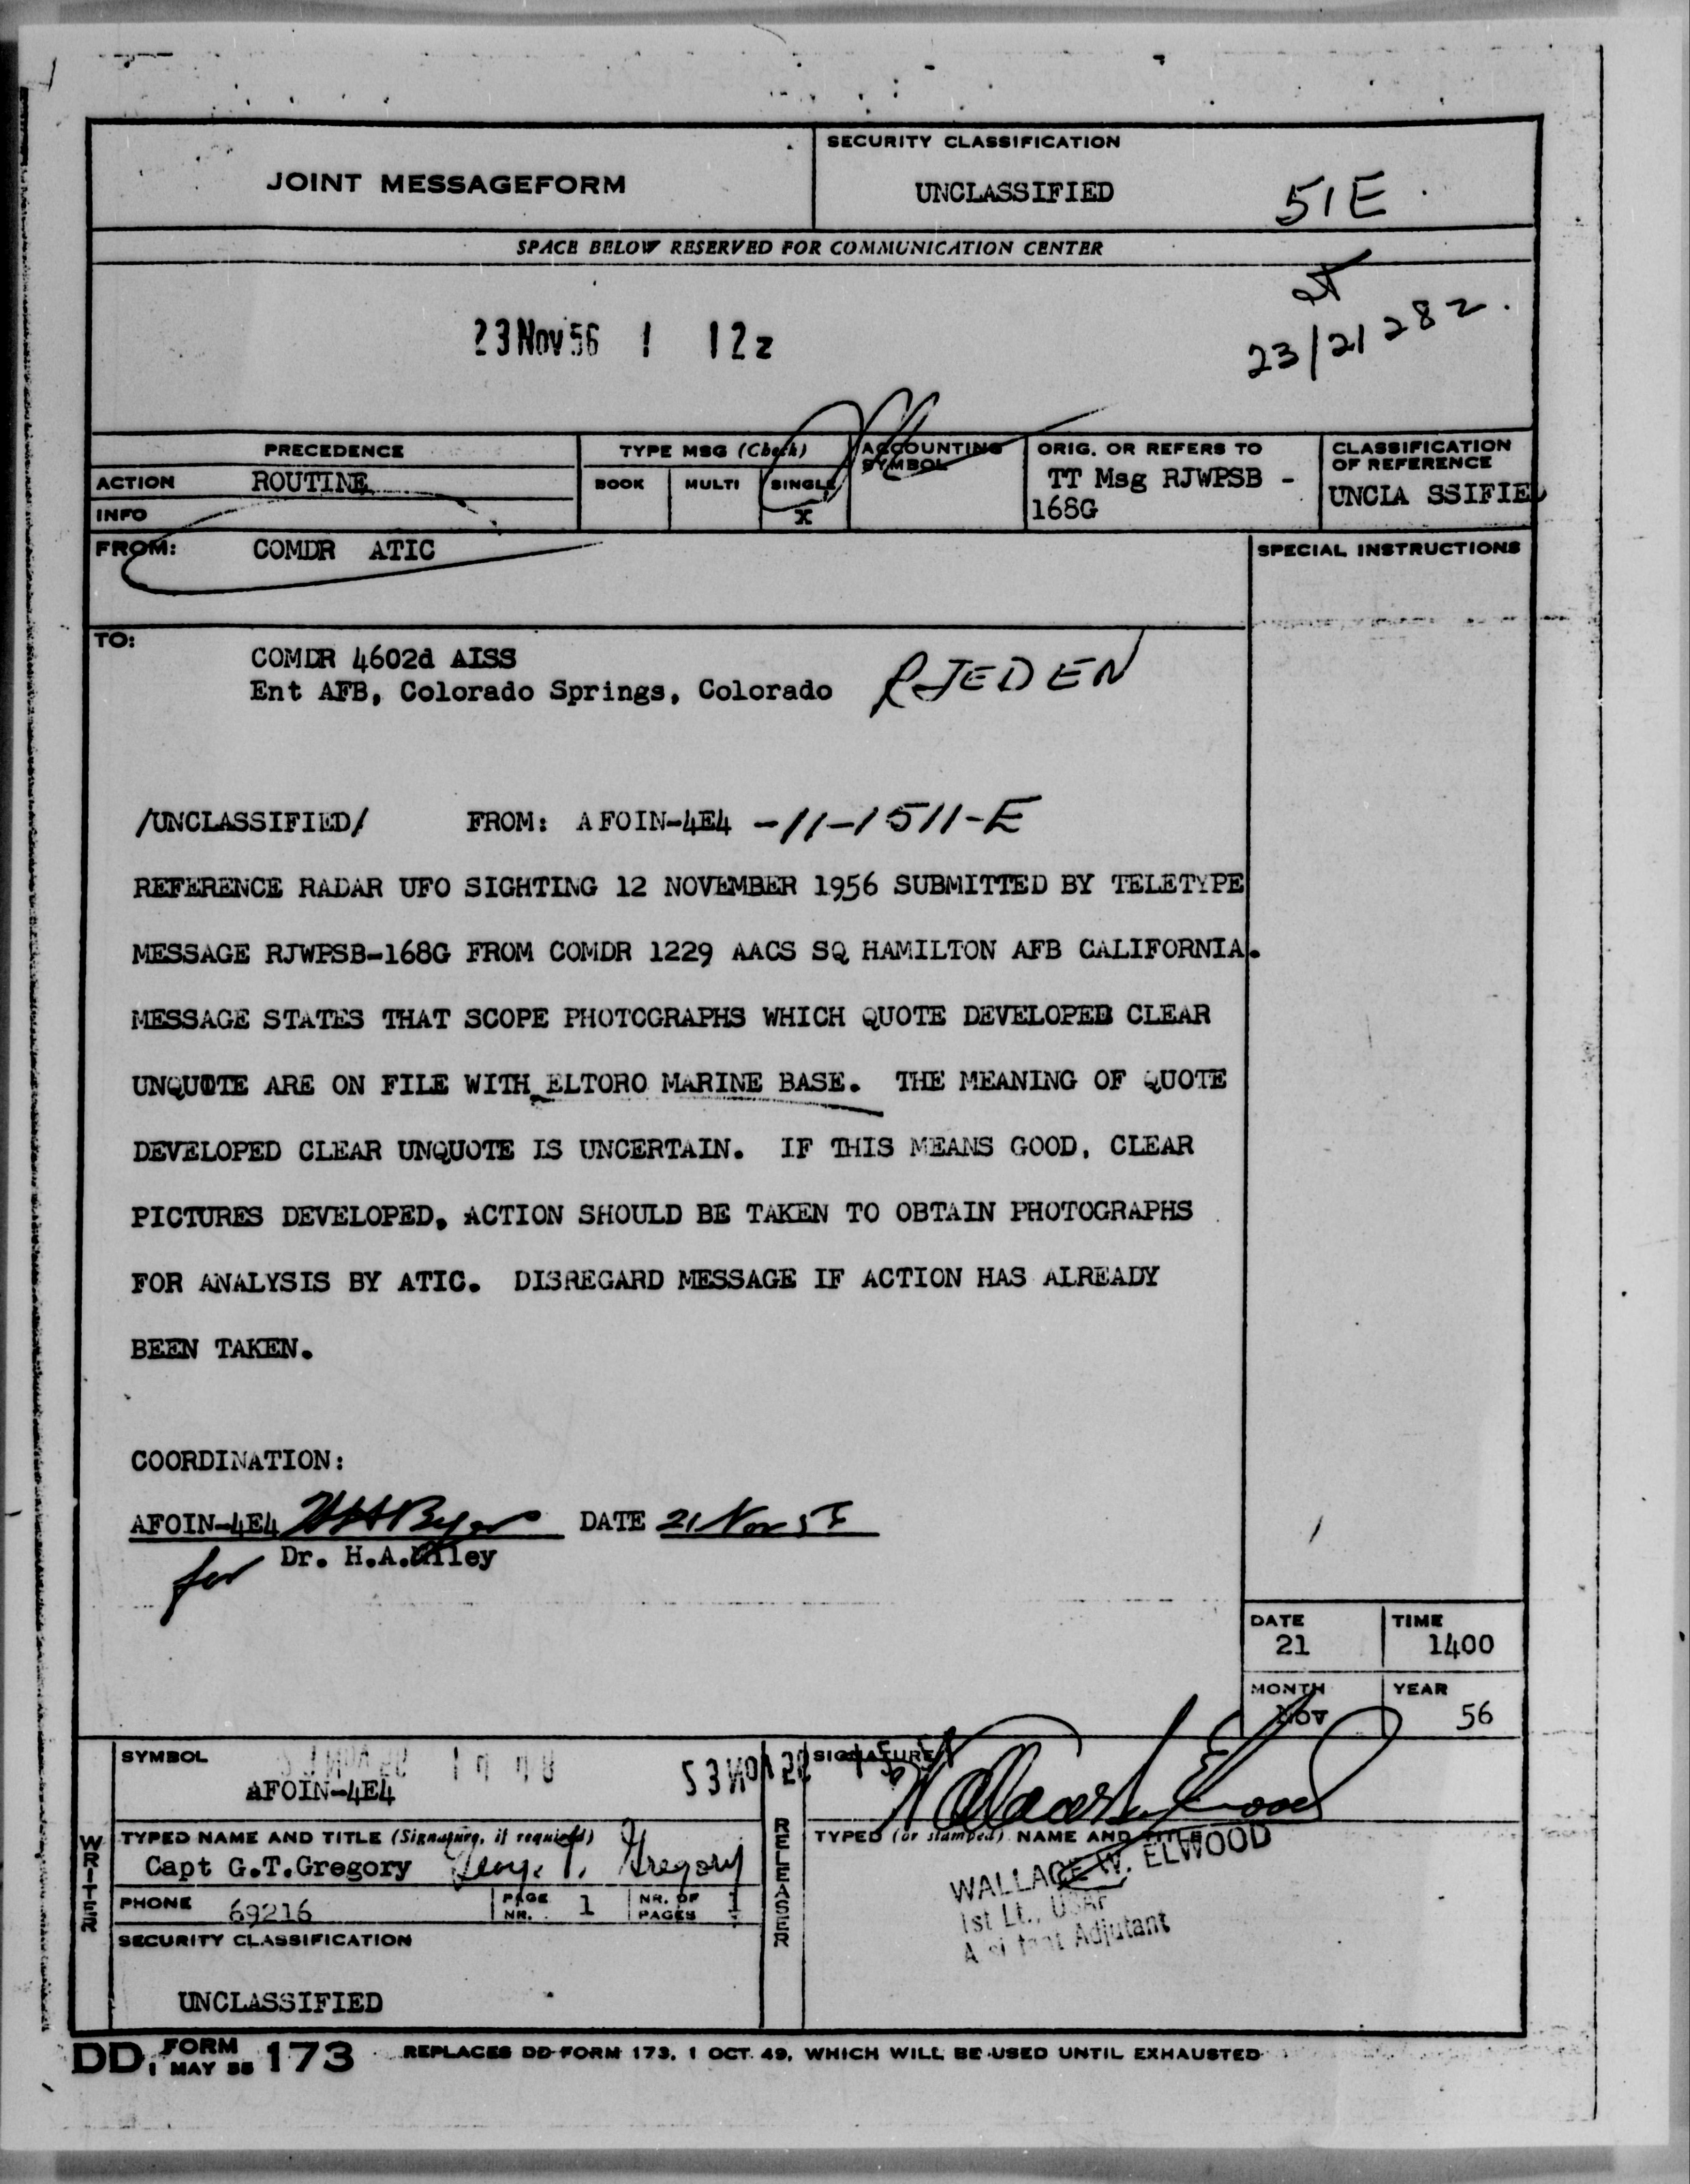 JOINT MESSAGEFORM
SECURITY CLASSIFICATION
UNCLASSIFIED
51E
SPACE BELOW RESERVED FOR COMMUNICATION CENTER
23 Nov 56 1 12z
23/21282.
PRECEDENCE
TYPE MSG (Check)
ACCOUNTING SYMBOL
ORIG. OR REFERS TO
CLASSIFICATION OF REFERENCE
ACTION ROUTINE
BOOK MULTI SINGLE
X
TT Msg RJWPSB -
168G
UNCLA SSIFIED
INFO
FROM: COMDR ATIC
SPECIAL INSTRUCTIONS
TO:
COMDR 4602d AISS
Ent AFB, Colorado Springs, Colorado RJEDEN
/UNCLASSIFIED/ FROM: AFOIN-4E4 -11-1511-E
REFERENCE RADAR UFO SIGHTING 12 NOVEMBER 1956 SUBMITTED BY TELETYPE
MESSAGE RJWPSB-168G FROM COMDR 1229 AACS SQ HAMILTON AFB CALIFORNIA.
MESSAGE STATES THAT SCOPE PHOTOGRAPHS WHICH QUOTE DEVELOPED CLEAR
UNQUOTE ARE ON FILE WITH ELTORO MARINE BASE. THE MEANING OF QUOTE
DEVELOPED CLEAR UNQUOTE IS UNCERTAIN. IF THIS MEANS GOOD, CLEAR
PICTURES DEVELOPED, ACTION SHOULD BE TAKEN TO OBTAIN PHOTOGRAPHS
FOR ANALYSIS BY ATIC. DISREGARD MESSAGE IF ACTION HAS ALREADY
BEEN TAKEN.
COORDINATION:
AFOIN-4E4 DATE 21 Nov 56
for Dr. H.A.Miley
DATE 21
TIME 1400
MONTH NOV
YEAR 56
SYMBOL
AFOIN-4E4
SIGNATURE
Wallace W. Elwood
WRITER
TYPED NAME AND TITLE (Signature, if required)
Capt G.T.Gregory George T. Gregory
PHONE 69216
PAGE NR. 1
NR. OF PAGES 1
SECURITY CLASSIFICATION
UNCLASSIFIED
RELEASER
TYPED (or stamped) NAME AND TITLE
WALLACE W. ELWOOD
1st Lt., USAF
Assistant Adjutant
DD FORM 1 MAY 55 173 REPLACES DD FORM 173, 1 OCT 49, WHICH WILL BE USED UNTIL EXHAUSTED